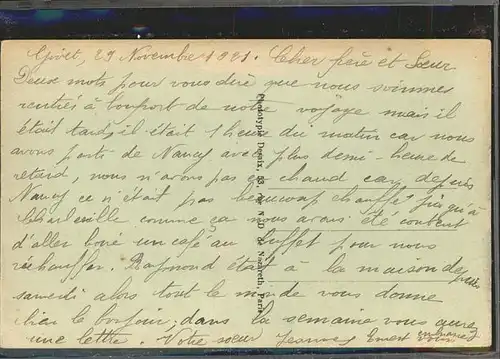 Givet, 29 Novembre 1921. Cher frère et Sœur
Deux mots pour vous dire que nous sommes
rentré à bonport de notre voyage mais il
était tard, il était 1 heure du matin car nous
avons parti de Nancy avec plus demi-heure de
retard, nous n'avons pas eu chaud car depuis
Nancy ce n'était pas beaucoup chauffé jusqu'à
Charleville comme ça nous avons été content
d'aller boire un café au buffet pour nous
réchauffer. Raymond était à la maison depuis
samedi alors tout le monde vous donne
bien le bonjour, dans la semaine vous aurez
une lettre. Votre sœur Ernest
Phototypie Desaix, 13, r. N.-D de Nazareth, Paris